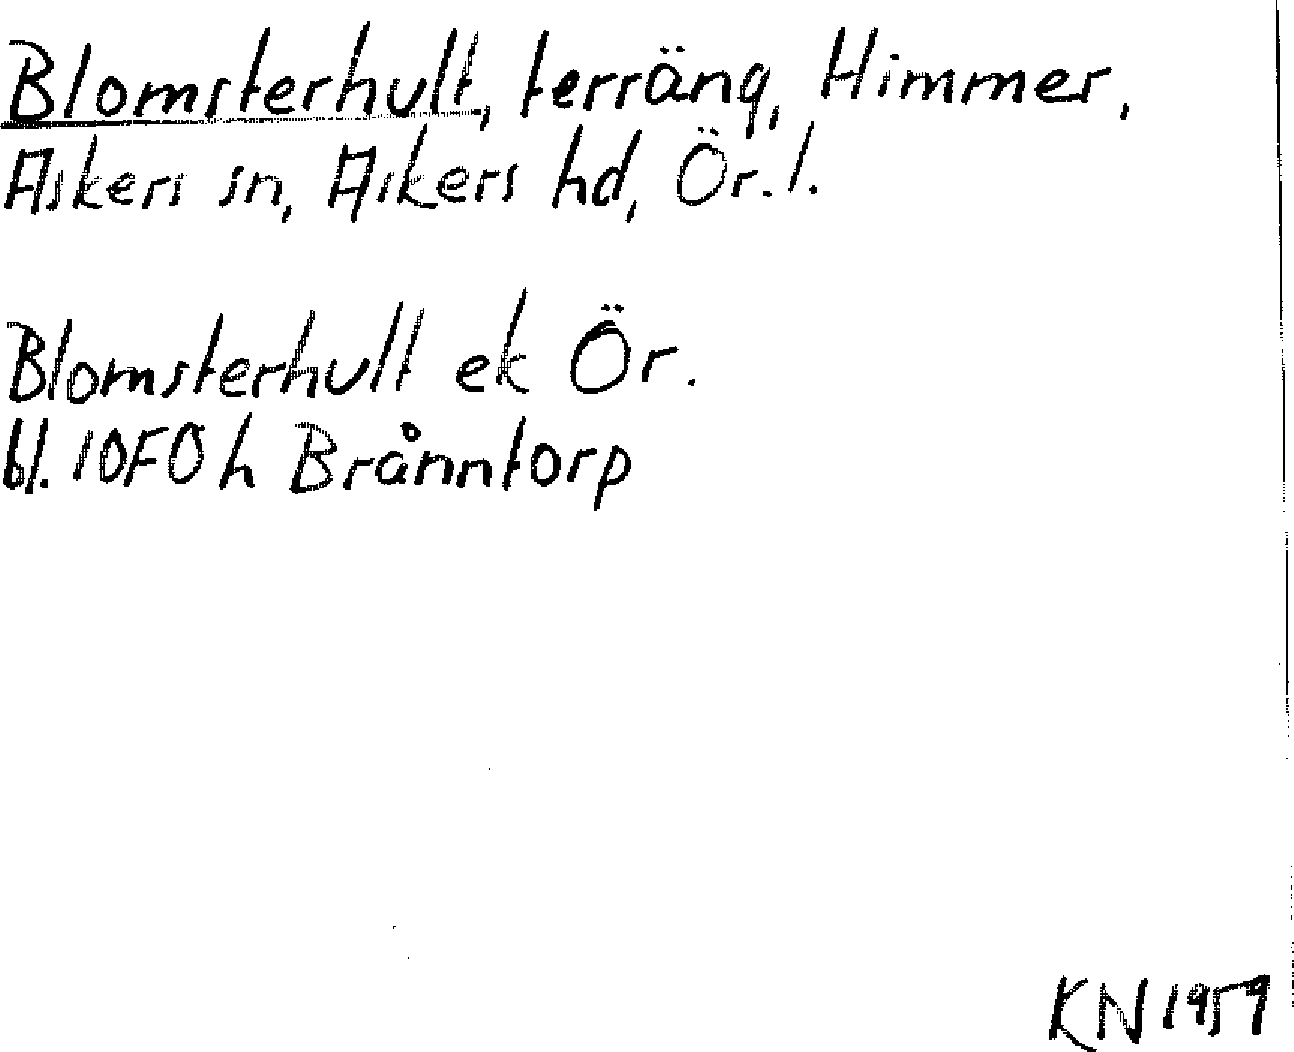 Blomsterhult, terräng, Himmer,
Askers sn, Askers hd, Ör. l.
Blomsterhult ek Ör.
bl. 10F0h Brånntorp
KN 1959